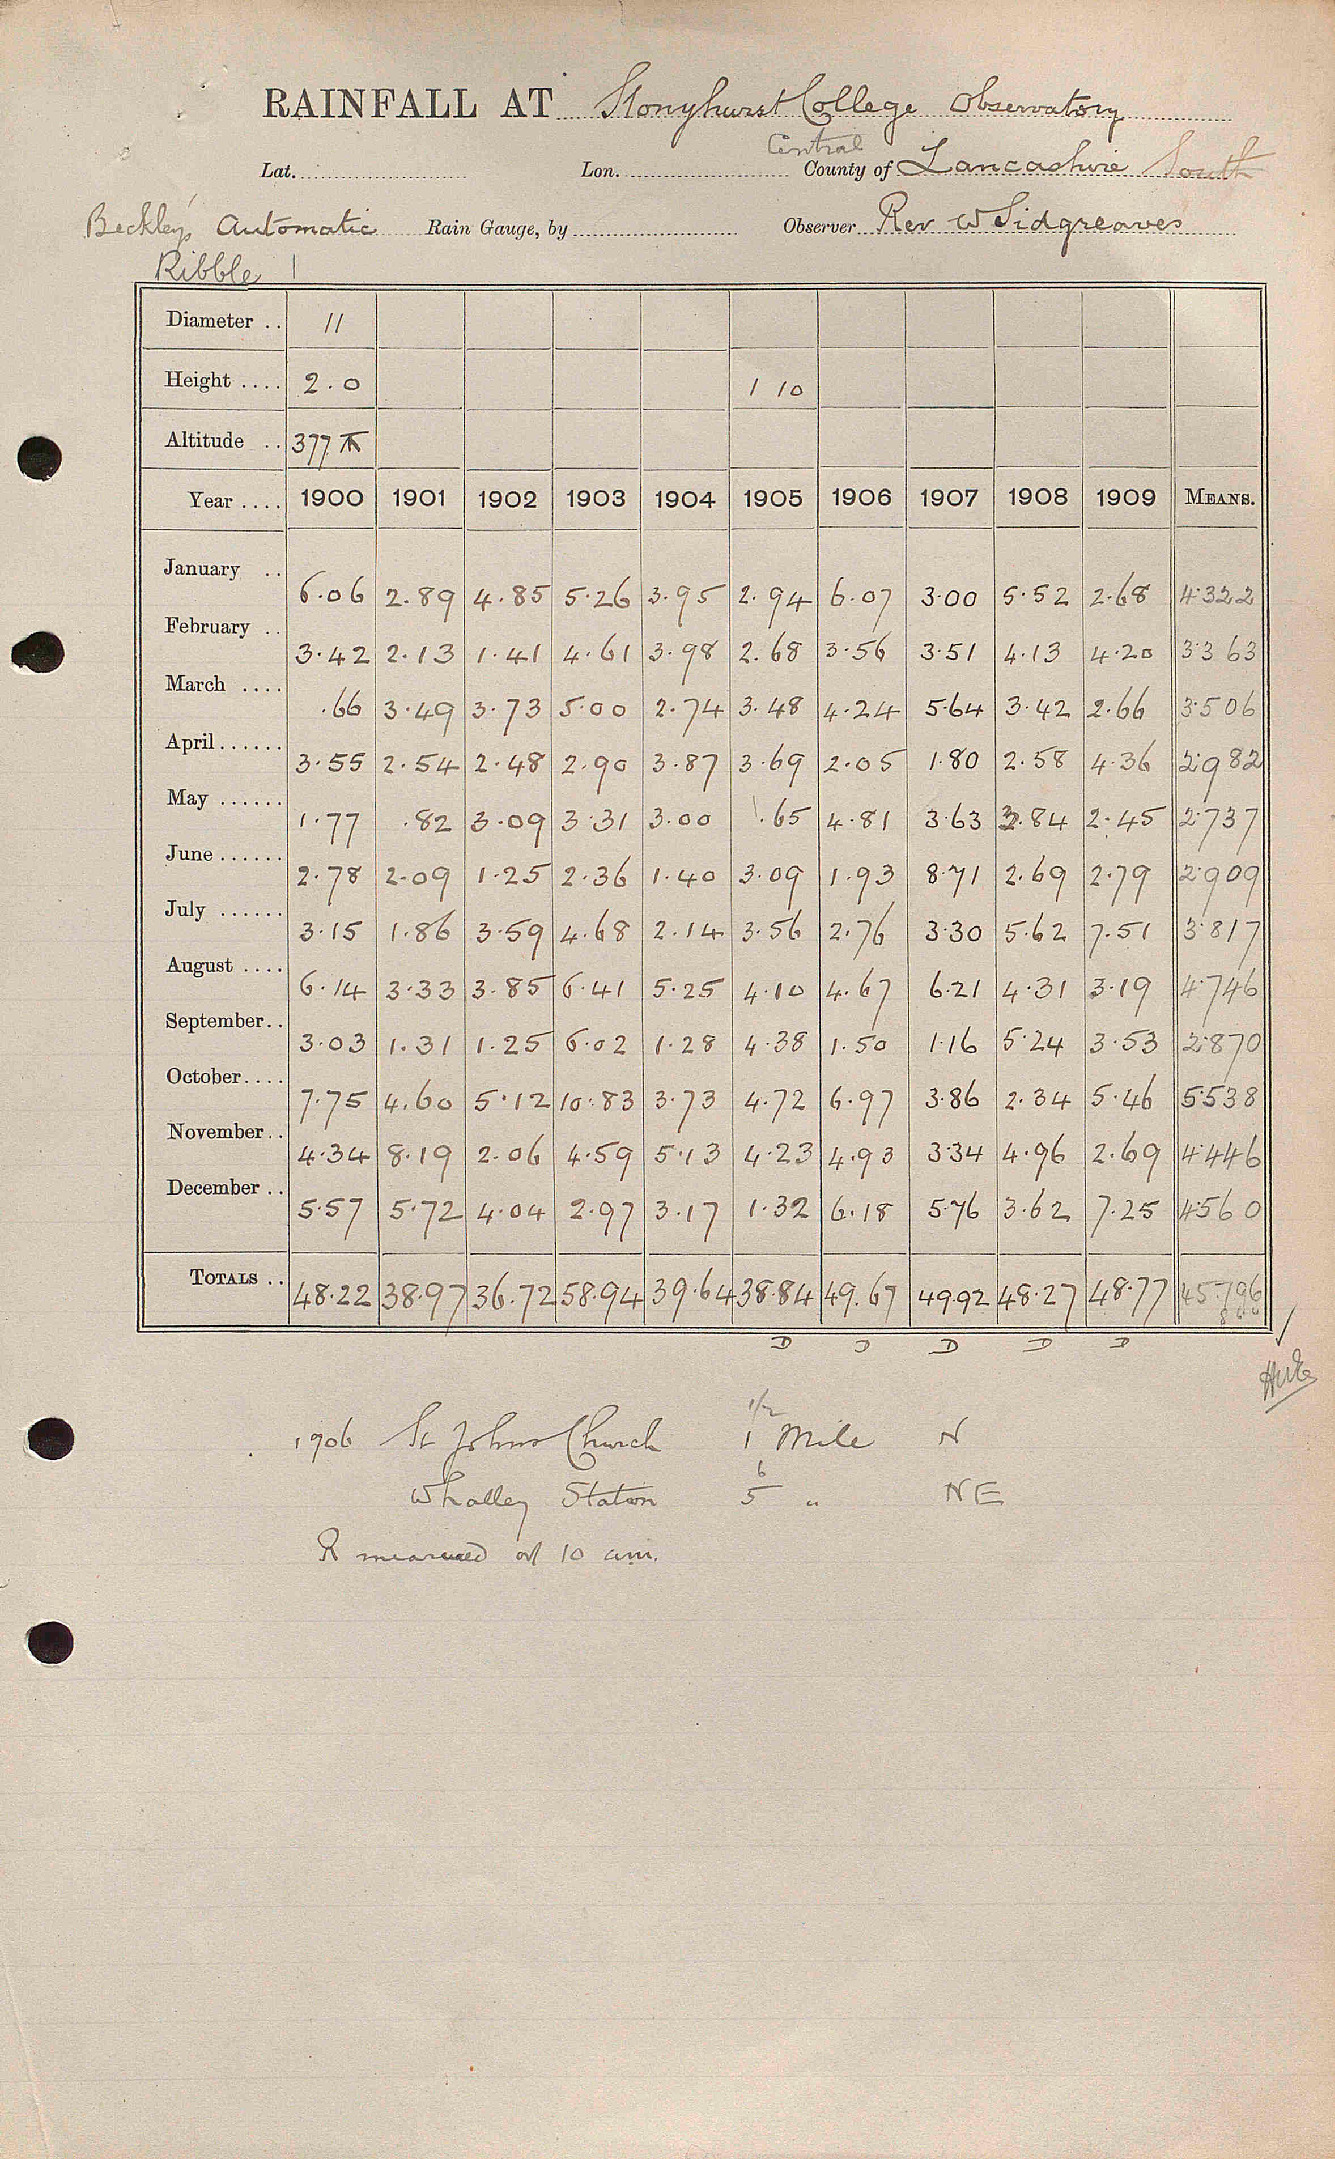 RAINFALL AT Stonyhurst College Observatory
Central
Lat. Lon. County of Lancashire South
Beckley's Automatic Rain Gauge, by Observer Rev W Sidgreaves
Ribble 1
Diameter .. 11
Height .... 2.0 1 10
Altitude .. 377
Year .... 1900 1901 1902 1903 1904 1905 1906 1907 1908 1909 MEANS.
January .. 6.06 2.89 4.85 5.26 3.95 2.94 6.07 3.00 5.52 2.68 4.322
February .. 3.42 2.13 1.41 4.61 3.98 2.68 3.56 3.51 4.13 4.20 3.363
March .... .66 3.49 3.73 5.00 2.74 3.48 4.24 5.64 3.42 2.66 3.506
April ...... 3.55 2.54 2.48 2.90 3.87 3.69 2.05 1.80 2.58 4.36 2.982
May ...... 1.77 .82 3.09 3.31 3.00 .65 4.81 3.63 3.84 2.45 2.737
June ...... 2.78 2.09 1.25 2.36 1.40 3.09 1.93 8.71 2.69 2.79 2.909
July ...... 3.15 1.86 3.59 4.68 2.14 3.56 2.76 3.30 5.62 7.51 3.817
August .... 6.14 3.33 3.85 6.41 5.25 4.10 4.67 6.21 4.31 3.19 4.746
September .. 3.03 1.31 1.25 6.02 1.28 4.38 1.50 1.16 5.24 3.53 2.870
October .... 7.75 4.60 5.12 10.83 3.73 4.72 6.97 3.86 2.34 5.46 5.538
November .. 4.34 8.19 2.06 4.59 5.13 4.23 4.93 3.34 4.96 2.69 4.446
December .. 5.57 5.72 4.04 2.97 3.17 1.32 6.18 5.76 3.62 7.25 4.560
TOTALS .. 48.22 38.97 36.72 58.94 39.64 38.84 49.67 49.92 48.27 48.77 45.796
D D D D D
1/2
1906 St Johns Church 1 Mile N
6
Whalley Station 5 " NE
R measured at 10 a.m.